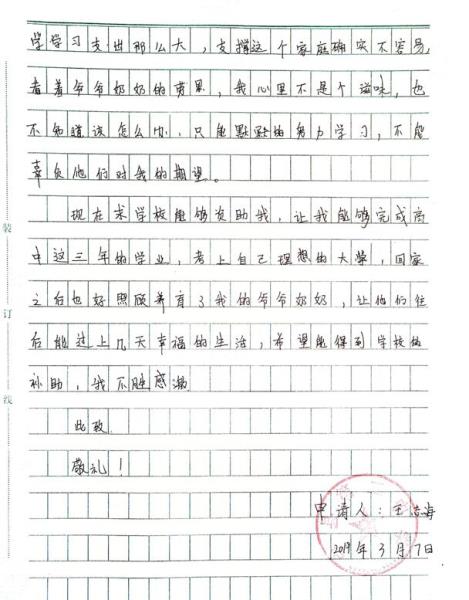 学学习支出那么大，支撑这个家庭确实不容易，
看着爷爷奶奶的劳累，我心里不是个滋味，也
不知道该怎么办，只能默默的努力学习，不能
辜负他们对我的期望。
现在求学校能够资助我，让我能够完成高
中这三年的学业，考上自己理想的大学，回家
之后也好照顾养育了我的爷爷奶奶，让他们往
后能过上几天幸福的生活，希望能得到学校的
补助，我不胜感激
此致
敬礼！
申请人：王浩海
2019年3月7日
装
订
线